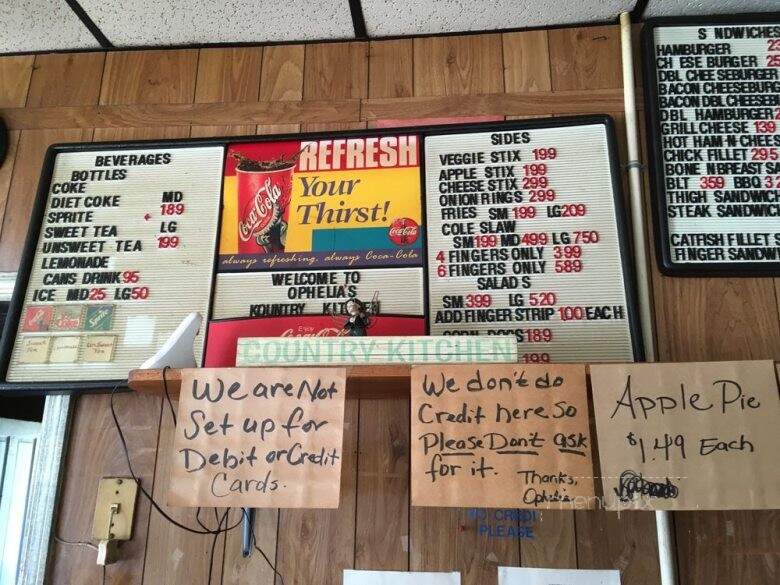 BEVERAGES
BOTTLES
COKE
DIET COKE MD
SPRITE 189
SWEET TEA LG
UNSWEET TEA 199
LEMONADE
CANS DRINK 95
ICE MD 25 LG 50
Coke
Sprite
REFRESH
Your
Thirst!
Coca-Cola
Coca-Cola
always refreshing. always Coca-Cola
WELCOME TO
OPHELIA'S
KOUNTRY
Enjoy
SIDES
VEGGIE STIX 199
APPLE STIX 199
CHEESE STIX 299
ONION RINGS 299
FRIES SM 199 LG 209
COLE SLAW
SM 199 MD 499 LG 750
4 FINGERS ONLY 399
6 FINGERS ONLY 589
SALAD S
SM 399 LG 520
ADD FINGER STRIP 1.00 EACH
189
COUNTRY KITCHEN
S NDWICHES
HAMBURGER
CH ESE BURGER
DBL CHEE SEBURGER
BACON CHEESEBURG
BACON DBL CHEESEB
DBL HAMBURGER
GRILL CHEESE 139
HOT HAM N CHEES
CHICK FILLET 295
BONE N BREAST SA
BLT 359 BBQ
THIGH SANDWIC
STEAK SANDWIC
CATFISH FILLET
FINGER SANDW
We are Not
Set up for
Debit or Credit
Cards.
We don't do
Credit here So
Please Dont ask
for it. Thanks,
Ophelia
Apple Pie
$1.49 Each
NO CREDIT
PLEASE